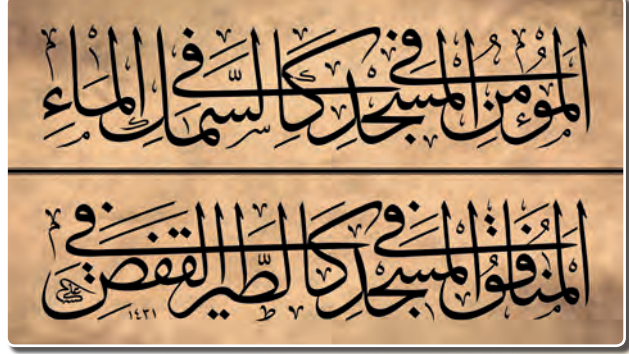 اَلْمُؤْمِنُ فِي الْمَسْجِدِ كَالسَّمَكِ فِي الْمَاءِ
اَلْمُنَافِقُ فِي الْمَسْجِدِ كَالطَّيْرِ فِي الْقَفَصِ
١٤٣١